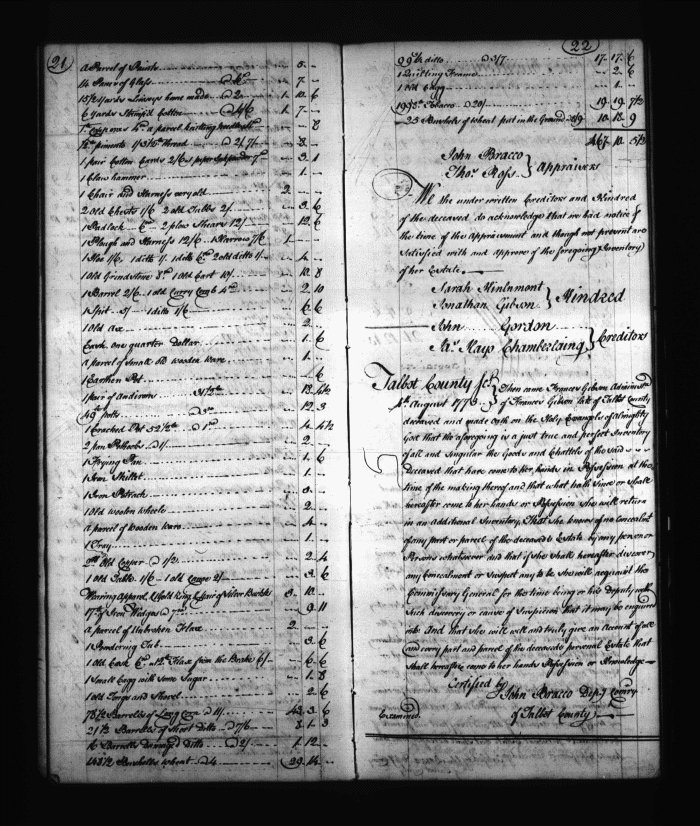 21
a Parcel of Paints 5
14 Panes of Glass 7
15 1/2 Yards Linsey home made @ 2 1 10 6
6 Yards Stamp'd Cotton @ 4/6 1 7
8
8
1 pair Cotton Cards 2/6 3 1
1 Claw hammer 1
1 Chair and Harness very old 2
2 old Chests 1/6 2 old Tables 2/ 3 6
1 Padlock 2 plow Shears 12/ 12 6
1 Plough and Harness 12/6 1 Harrow 7/6 1
1 Hoe 1/6 1 ditto 1/ 1 ditto 2 old ditto 1/ 4
1 Old Grindstone 8d 1 Old Cart 10/ 10 8
1 Barrel 2/6 1 old Curry Comb 4d 2 10
1 Spit 5/ 1 ditto 1/6 6 6
1 Old ax 2
Cash one quarter Dollar 1 6
a parcel of Small old wooden ware 1
1 Earthen Pot 6
1 pair of Andirons 13 4 1/2
49 potts 12 3
1 Cracked Pot 52 1/2 @ 1d 4 4 1/2
2 pan Pothooks @ 1/ 2
1 Frying Pan 1 6
1 Iron Skillet 1
1 Iron Potrack 3
1 Old woolen wheele 2
a parcel of Wooden Ware 4
1 Tray 1
Old Copper @ 1/2 2 4
1 Old Table 1/6 1 old Couge 2/ 3 6
Waring Apparel, 1 Gold Ring & 1 pair of Silver Buckles 3 10
Iron Wedges 9 11
a parcel of Unbroken Flax 2
1 Powdering Tub 3 6
1 Old Cask 6d Flax from the Brake 6/ 6 6
1 Small Cagg with Some Sugar 1 8
1 old Tongs and Shovel 2 6
78 1/2 Barrells of Long Corn @ 11/ 43 3 6
21 1/2 Barrells of Short Ditto @ 7/6 3 1 3
16 Barrells Damaged Ditto @ 2/ 1 12
148 1/2 Bushells Wheat @ 4 29 14
22
ditto @ 3/7 17 17 6
1 Quilting Frame 2 6
1 Old Cagg 1
Tobacco @ 20/ 19 19 7 1/2
25 Bushels of Wheat put in the Ground 10 18 9
467 10 5 1/2
John Bracco
Thos Ross } Appraisers
We the under written Creditors and Kindred
of the deceased do acknowledge that we had notice of
the time of the Appraisment and though not present are
Satisfied with and approve of the foregoing Inventory
of her Estate.
Sarah Minlnmont
Jonathan Gibson } Kindred
John Gordon
Jas Mayo Chamberlaing } Creditors
Talbot County Sct } Then came Frances Gibson Administrx
4th August 1773 } of Frances Gibson late of Talbot County
deceased and made oath on the Holy Evangels of almighty
God that the aforegoing is a just true and perfect Inventory
of all and singular the Goods and Chattels of the said
Deceased that have come to her hands in Possession at the
time of the making thereof and that what hath since or shall
hereafter come to her hands or Possession she will return
in an additional Inventory. That she knows of no concealmt
of any part or parcel of the deceaseds Estate by any person or
Persons whatsoever and that if she shall hereafter discover
any concealment or suspect any to be she will acquaint the
Commissary General for the time being or his Deputy with
Such discovery or cause of Suspicion that it may be enquired
into And that she will well and truly give an Account of all
and every part and parcel of the deceaseds personal Estate that
shall hereafter come to her hands Possession or Knowledge
Certified by
John Bracco Depy Comry
Examined of Talbot County